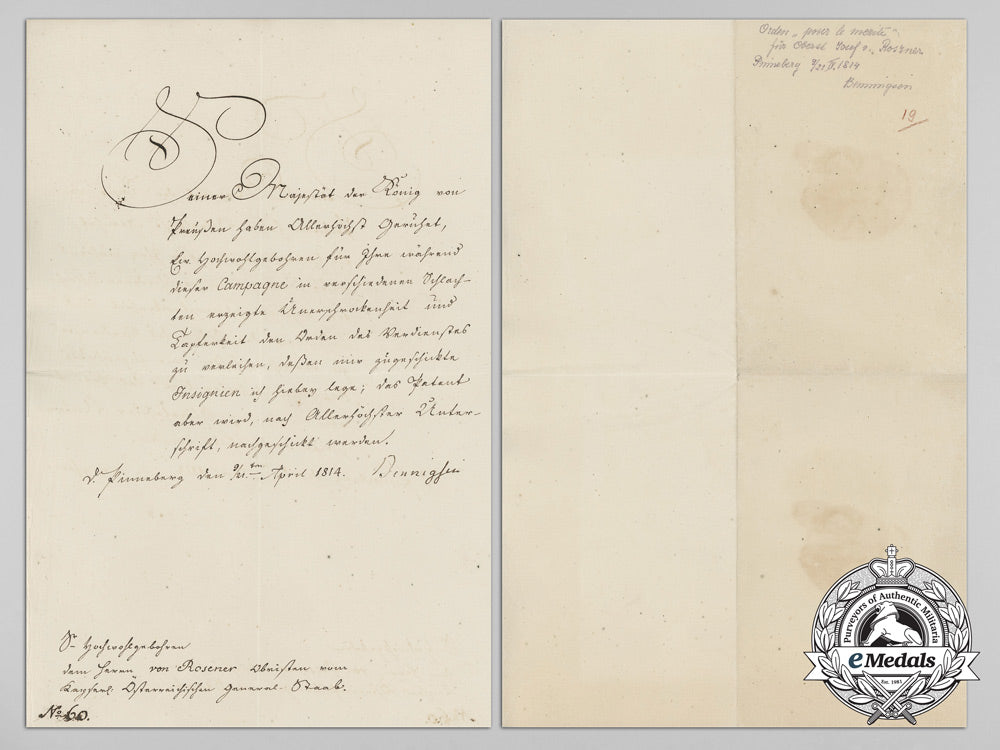 Seiner Majestät der König von
Preußen haben Allerhöchst Geruhet,
Ew. Hochwohlgebohren für Ihre während
dieser Campagne in verschiedenen Schlach-
ten erzeigte Unerschrockenheit und
Tapferkeit den Orden des Verdienstes
zu verleihen, deßen mir zugeschickte
Insignien ich hiebey lege; das Patent
aber wird, nach Allerhöchster Unter-
schrift, nachgeschickt werden.
d. Pinneberg den 9/21ten April 1814. Bennigsen
Sr Hochwohlgebohren
dem Herrn von Rosener Obristen vom
Kayserl. Österreichischen General-Staab.
No 60.
Orden "pour le merite"
für Oberst Josef v. Roszner
Pinneberg 9/21 IV. 1814
Benningsen
19
Purveyors of Authentic Militaria
eMedals
Est. 1981